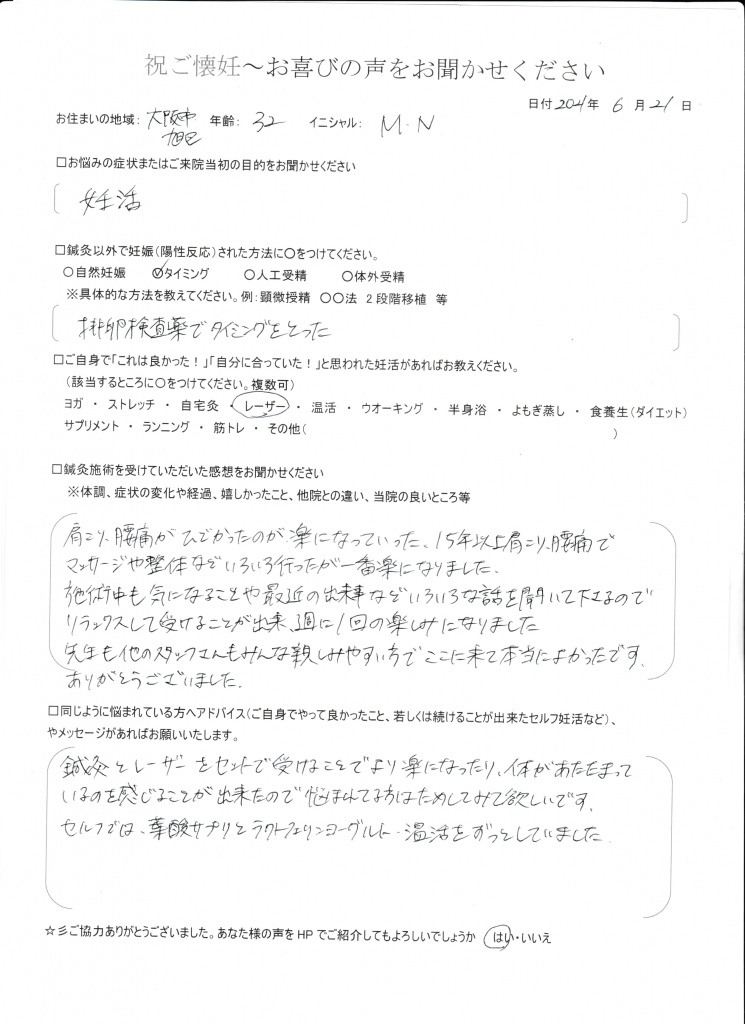 祝ご懐妊～お喜びの声をお聞かせください
日付 2021年 6月 21日
お住まいの地域: 大阪市旭区 年齢: 32 イニシャル: M.N
□お悩みの症状またはご来院当初の目的をお聞かせください
妊活
□鍼灸以外で妊娠(陽性反応)された方法に○をつけてください。
○自然妊娠 ○タイミング ○人工受精 ○体外受精
※具体的な方法を教えてください。例: 顕微授精 ○○法 2段階移植 等
排卵検査薬でタイミングをとった
□ご自身で「これは良かった!」「自分に合っていた!」と思われた妊活があればお教えください。
(該当するところに○をつけてください。複数可)
ヨガ ・ ストレッチ ・ 自宅灸 ・ レーザー ・ 温活 ・ ウオーキング ・ 半身浴 ・ よもぎ蒸し ・ 食養生(ダイエット)
サプリメント ・ ランニング ・ 筋トレ ・ その他( )
□鍼灸施術を受けていただいた感想をお聞かせください
※体調、症状の変化や経過、嬉しかったこと、他院との違い、当院の良いところ等
肩こり、腰痛がひどかったのが楽になっていった、15年以上肩こり、腰痛で
マッサージや整体などいろいろ行ったが一番楽になりました。
施術中も気になることや最近の出来事などいろいろな話を聞いて下さるので
リラックスして受けることが出来、週に1回の楽しみになりました
先生も他のスタッフさんもみんな親しみやすい方でここに来て本当によかったです。
ありがとうございました。
□同じように悩まれている方へアドバイス(ご自身でやって良かったこと、若しくは続けることが出来たセルフ妊活など)、
やメッセージがあればお願いいたします。
鍼灸とレーザーをセットで受けることでより楽になったり、体があたたまって
いるのを感じることが出来たので悩まれてる方はためしてみて欲しいです。
セルフでは、葉酸サプリとラクトフェリンヨーグルト・温活をずっとしていました
☆彡ご協力ありがとうございました。あなた様の声をHPでご紹介してもよろしいでしょうか はい・いいえ